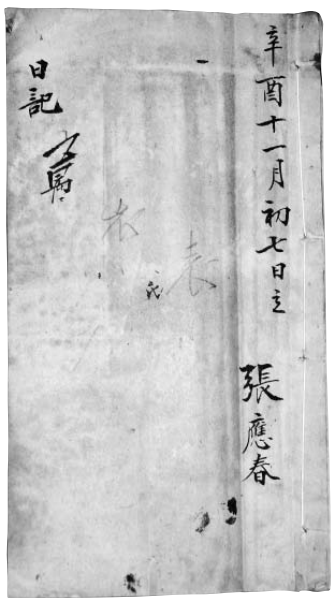 辛酉十一月初七日立
張應春
袁
氏
日記